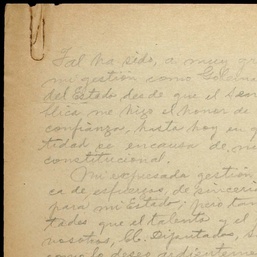 Tal ha sido, a muy gr
mi gestión como Gobern
del Estado, desde que el Secr
blica me hizo el honor de
confianza, hasta hoy en q
tidad se encausa de
constitucional.
Mi expresada gestión
ca de esfuerzos, de sinceri
para mi Estado; pero tam
tades que el talento y el
vosotros, CC. Diputados, s
como lo deseo ardientemen